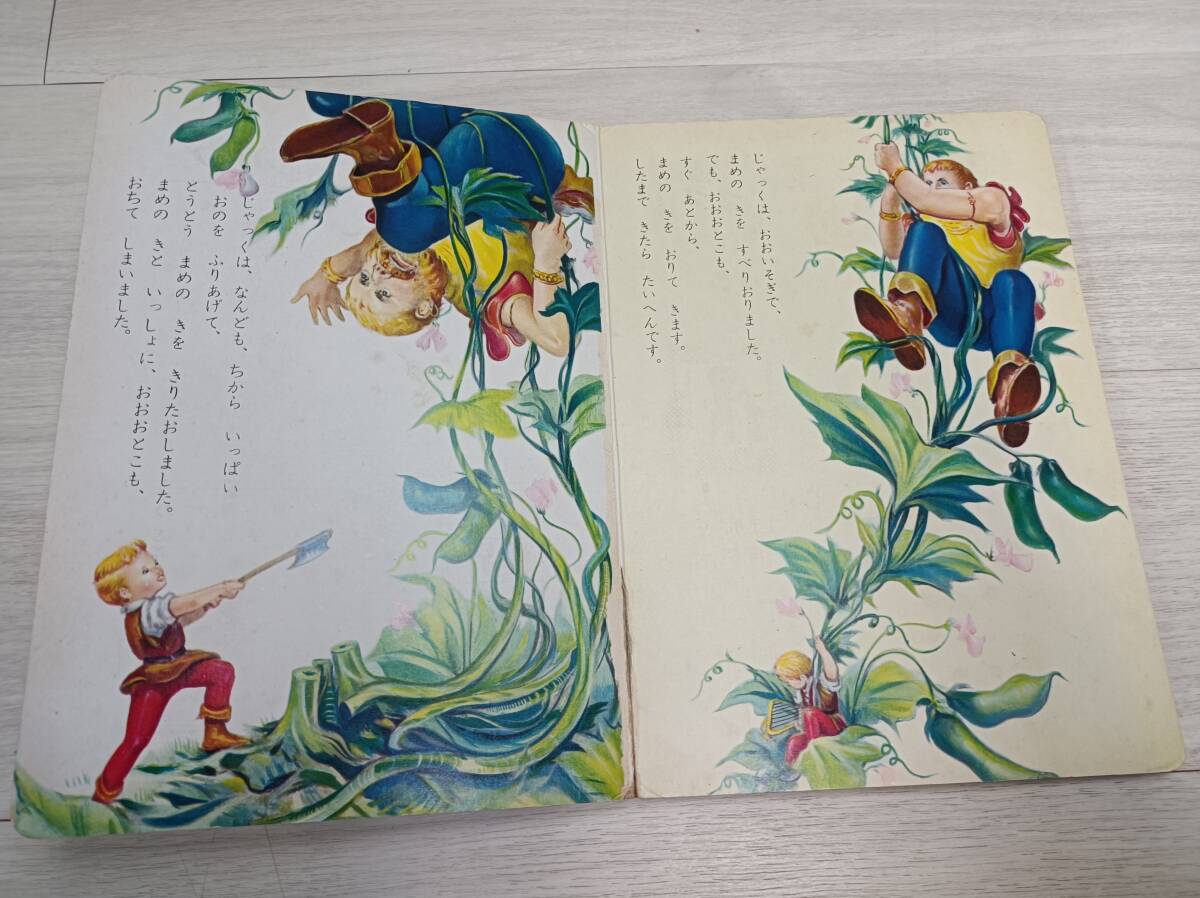 じゃっくは、おおいそぎで、
まめの きを すべりおりました。
でも、おおおとこも、
すぐ あとから、
まめの きを おりて きます。
したまで きたら たいへんです。
じゃっくは、なんども、ちから いっぱい
おのを ふりあげて、
とうとう まめの きを きりたおしました。
まめの きと いっしょに、おおおとこも、
おちて しまいました。